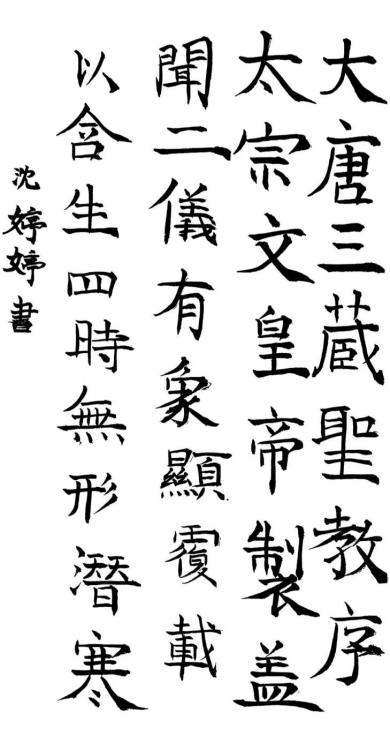 大唐三藏聖教序
太宗文皇帝製盖
聞二儀有象顯覆載
以含生四時無形潛寒
沈婷婷書